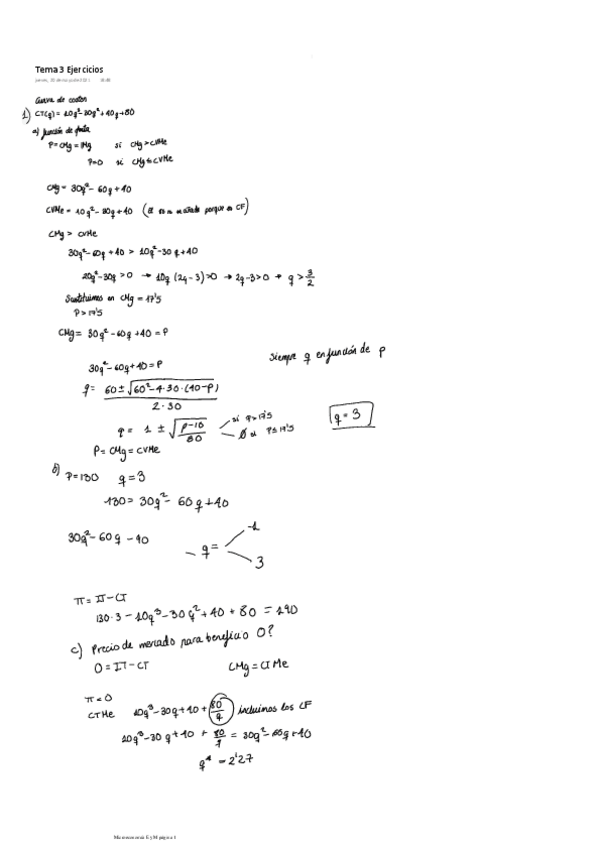 Tema 3 Ejercicios
Curva de costes
1) CT(q) = 10q³-30q²+40q+80
a) función de oferta
P=CMg = IMg si CMg > CVMe
P=0 si CMg ≤ CVMe
CMg = 30q² - 60q + 40
CVMe = 10q² - 30q + 40 (el 80 no se añade porque es CF)
CMg > CVMe
30q² - 60q + 40 > 10q² - 30q + 40
20q² - 30q > 0 → 10q (2q - 3) > 0 → 2q - 3 > 0 → q > 3/2
Sustituimos en CMg = 17'5
P > 17'5
CMg = 30q² - 60q + 40 = P
Siempre q en función de p
30q² - 60q + 40 = P
q = 60 ± √60² - 4·30·(40-P) / 2·30
q = 1 ± √P-10 / 30 si q > 17'5
Ø si P ≤ 17'5
q = 3
P = CMg = CVMe
b) P=130 q = 3
130 = 30q² - 60q + 40
30q² - 60q - 90
q = -1
3
π = IT - CT
130·3 - 10q³ - 30q² + 40 + 80 = 190
c) Precio de mercado para beneficio 0?
0 = IT - CT CMg = CTMe
π = 0
CTMe 10q³ - 30q + 40 + 80/q incluimos los CF
10q³ - 30q + 40 + 80/q = 30q² - 60q + 40
q* = 2'27
Microeconomía E y M página 1